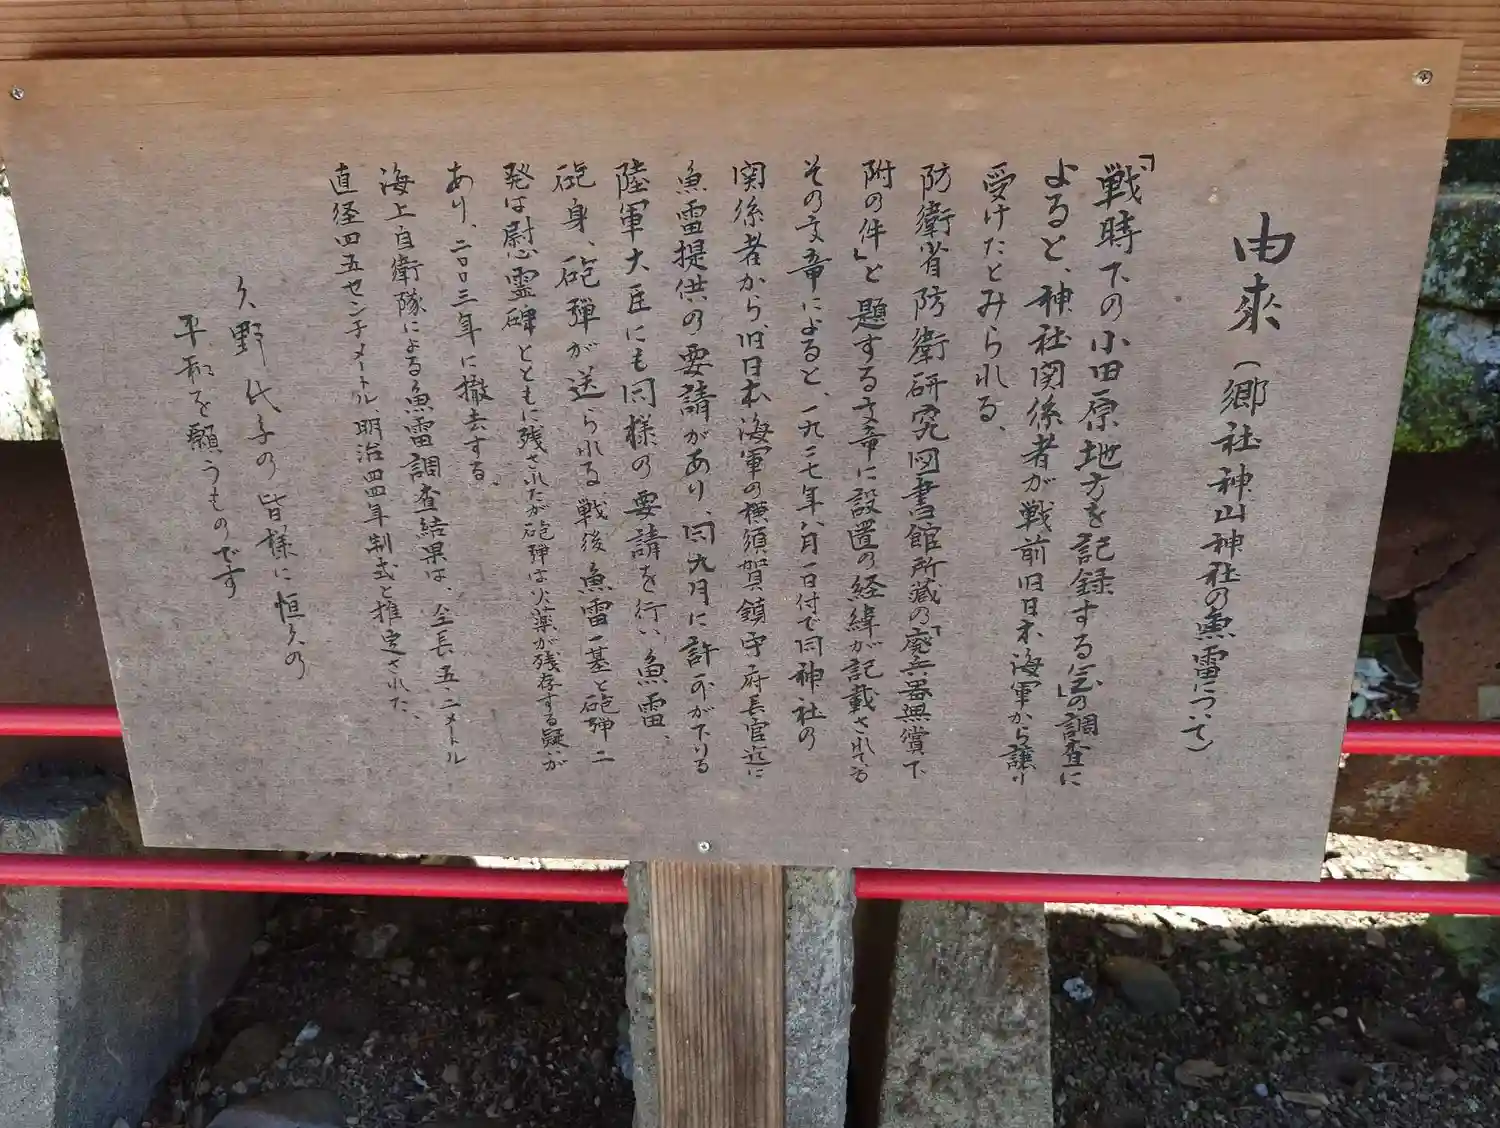 由来(郷社神山神社の魚雷について)
「戦時下の小田原地方を記録する会」の調査に
よると、神社関係者が戦前旧日本海軍から譲り
受けたとみられる、
防衛省防衛研究図書館所蔵の「廃兵器無償下
附の件」と題する文章に設置の経緯が記載されている
その文章によると、一九二七年八月一日付で同神社の
関係者から、旧日本海軍の横須賀鎮守府長官迄に
魚雷提供の要請があり、同九月に許可が下りる
陸軍大臣にも同様の要請を行い魚雷、
砲身、砲弾が送られる戦後魚雷一基と砲弾二
発は慰霊碑とともに残されたが砲弾は火薬が残存する疑いが
あり、二〇〇三年に撤去する、
海上自衛隊による魚雷調査結果は、全長五、二メートル
直径四五センチメートル明治四四年制式と推定された、
久野代子の皆様に恒久の
平和を願うものです